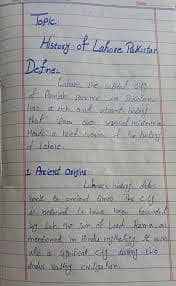 Topic:
History of Lahore Pakistan
Define:
Lahore the cultural city
of Punjab province in Pakistan
has a rich and vibrant history
that span over several millennia
Here's a brief overview of the history
of Lahore.
1. Ancient Origins:
Lahore's history dates
back to ancient times. The city
is believed to have been founded
by Loh the son of Lord Rama, as
mentioned in Hindu mythology. It was
also a significant city during the
Indus Valley civilization.